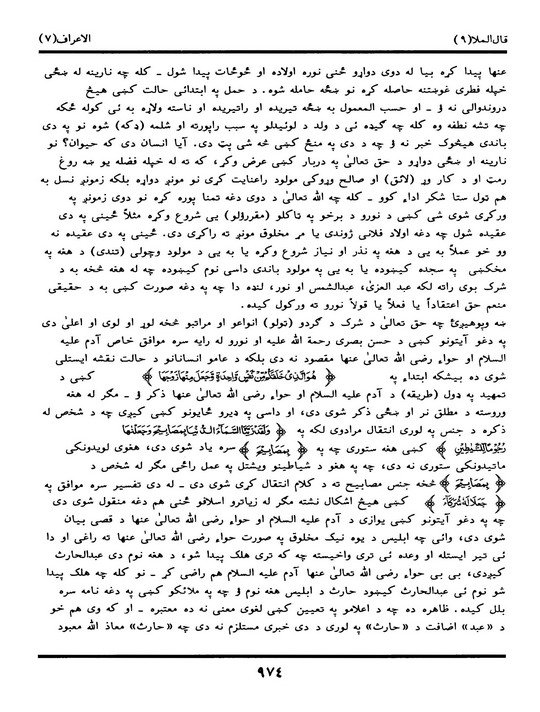 قال الملا(٩) الاعراف(٧)
عنها پيدا کړه بيا له دوی دواړو ځنی نوره اولاده او څوځات پيدا شول ـ کله چه نارينه له ښځی
خپله فطری غوښتنه حاصله کړه نو ښځه حامله شوه. د حمل په ابتدائی حالت کښی هيڅ
دروندوالی نه ؤ ـ او حسب المعمول به ښځه تيريده او راتيريده او ناسته ولاړه به ئی کوله ځکه
چه تشه نطفه وه کله چه ګيډه ئی د ولد د لوئيدلو په سبب راپورته او شلمه (ډکه) شوه نو په دی
باندی هيڅوک خبر نه ؤ چه د دی په منځ کښی څه شی پټ دی. آيا انسان دی که حيوان؟ نو
نارينه او ښځی دواړو د حق تعالیٰ په دربار کښی عرض وکړ، که ته له خپله فضله يو ښه روغ
رمټ او د کار وړ (لائق) او صالح وړوکی مولود راعنايت کړی نو مونږ دواړه بلکه زمونږ نسل به
هم تول ستا شکر اداء کوو ـ کله چه الله تعالیٰ د دوی دغه تمنا پوره کړه نو دوی زمونږ په
ورکړی شوی شی کښی د نورو د برخو په ټاکلو (مقررؤلو) يی شروع وکړه مثلاً ځينی په دی
عقيده شول چه دغه اولاد فلانی ژوندی يا مړ مخلوق مونږ ته راکړی دی. ځينی په دی عقيده نه
وو خو عملاً به يی د هغه په نذر او نياز شروع وکړه يا به يی د مولود وچولی (تندی) د هغه په
مخکښی په سجده کيښوده يا به يی په مولود باندی داسی نوم کيښوده چه له هغه څخه به د
شرک بوی راته لکه عبد العزیٰ، عبدالشمس او نور، لنډه دا چه په دغه صورت کښی به د حقيقی
منعم حق اعتقاداً يا فعلاً يا قولاً نورو ته ورکول کيده.
ښه وپوهيږئ چه حق تعالیٰ د شرک د ګردو (تولو) انواعو او مراتبو څخه لوړ او لوی او اعلیٰ دی
په دغو آيتونو کښی د حسن بصری رحمة الله عليه او نورو له رايه سره موافق خاص آدم عليه
السلام او حواء رضی الله تعالیٰ عنها مقصود نه دی بلکه د عامو انسانانو د حالت نقشه ايستلی
شوی ده بيشکه ابتداء په ﴿ هُوَالَّذِیْ خَلَقَکُمْ مِّنْ نَّفْسٍ وَّاحِدَةٍ وَّجَعَلَ مِنْهَا زَوْجَهَا ﴾ کښی د
تمهيد په ډول (طريقه) د آدم عليه السلام او حواء رضی الله تعالیٰ عنها ذکر ؤ ـ مګر له هغه
وروسته د مطلق نر او ښځی ذکر شوی دی، او داسی په ډيرو ځايونو کښی کيږی چه د شخص له
ذکره د جنس په لوری انتقال مرادوی لکه په ﴿ وَلَقَدْ زَيَّنَّا السَّمَآءَ الدُّنْيَا بِمَصَابِيْحَ وَجَعَلْنٰهَا
رُجُوْمًا لِّلشَّيٰطِيْنِ ﴾ کښی هغه ستوری چه په ﴿ بِمَصَابِيْحَ ﴾ سره ياد شوی دی، هغوی لويدونکی
ماتيدونکی ستوری نه دی، چه په هغو د شياطينو ويشتل په عمل راځی مګر له شخص د
﴿ بِمَصَابِيْحَ ﴾ څخه جنس مصابيح ته د کلام انتقال کړی شوی دی ـ له دی تفسير سره موافق په
﴿ جَعَلَا لَهٗ شُرَكَآءَ ﴾ کښی هيڅ اشکال نشته مګر له زياترو اسلافو ځنی هم دغه منقول شوی دی
چه په دغو آيتونو کښی يوازی د آدم عليه السلام او حواء رضی الله تعالیٰ عنها د قصی بيان
شوی دی، وائی چه ابليس د يوه نيک مخلوق په صورت حواء رضی الله تعالیٰ عنها ته راغی او دا
ئی تير ايستله او وعده ئی تری واخيسته چه که تری هلک پيدا شو، د هغه نوم دی عبدالحارث
کيږدی، بی بی حواء رضی الله تعالیٰ عنها آدم عليه السلام هم راضی کړ ـ نو کله چه هلک پيدا
شو نوم ئی عبدالحارث کيښود حارث د ابليس هغه نوم ؤ چه په ملائکو کښی په دغه نامه سره
بلل کيده. ظاهره ده چه د اعلامو په تعيين کښی لغوی معنی نه ده معتبره ـ او که وی هم خو
د «عبد» اضافت د «حارث» په لوری د دی خبری مستلزم نه دی چه «حارث» معاذ الله معبود
٩٧٤